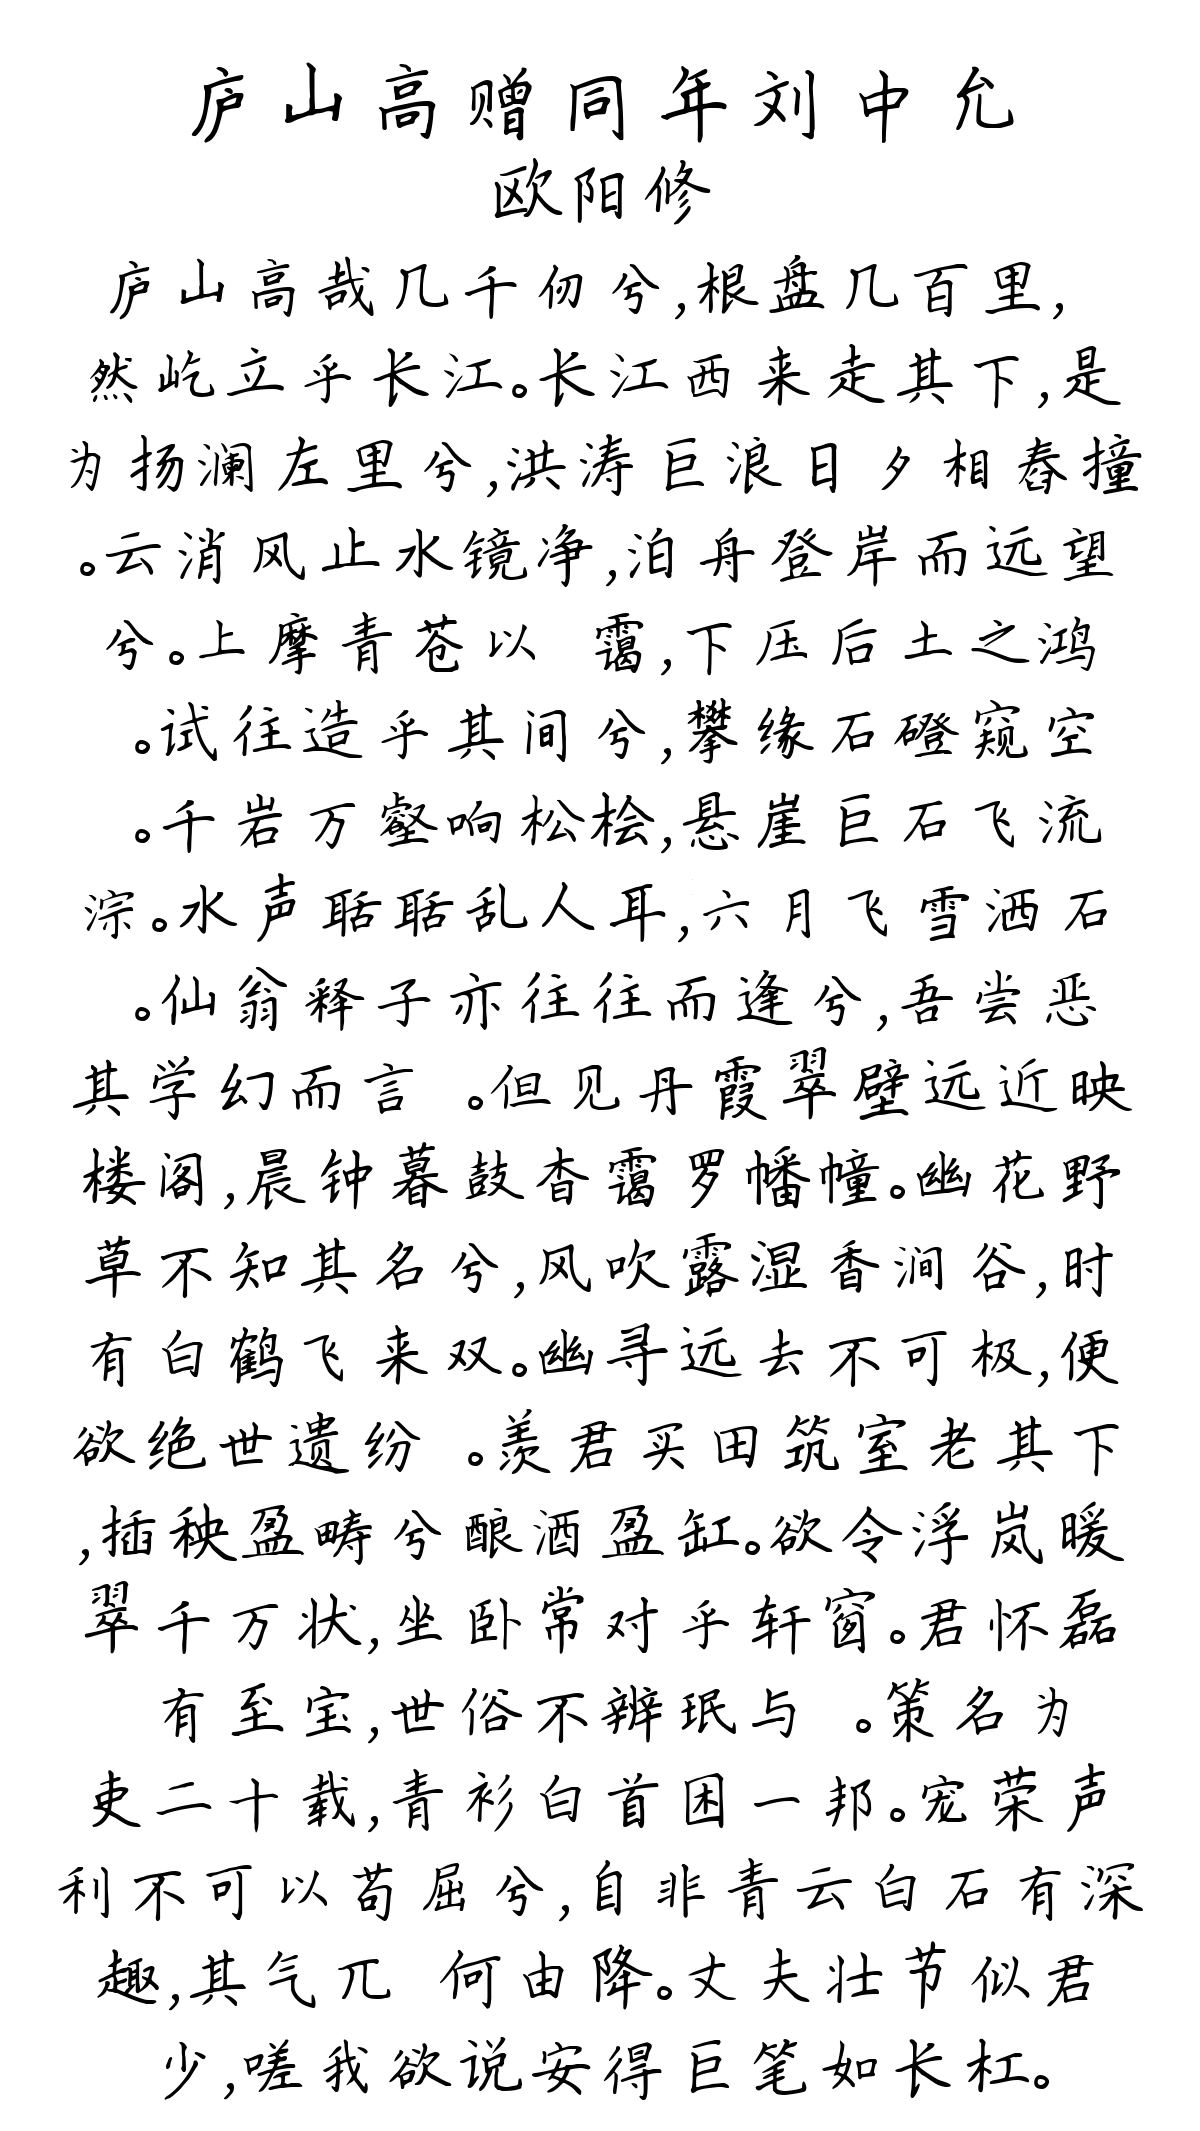 庐山高赠同年刘中允
欧阳修
庐山高哉几千仞兮,根盘几百里,
然屹立乎长江。长江西来走其下,是
为扬澜左里兮,洪涛巨浪日夕相舂撞
。云消风止水镜净,泊舟登岸而远望
兮。上摩青苍以 霭,下压后土之鸿
。试往造乎其间兮,攀缘石磴窥空
。千岩万壑响松桧,悬崖巨石飞流
淙。水声聒聒乱人耳,六月飞雪洒石
。仙翁释子亦往往而逢兮,吾尝恶
其学幻而言 。但见丹霞翠壁远近映
楼阁,晨钟暮鼓杳霭罗幡幢。幽花野
草不知其名兮,风吹露湿香涧谷,时
有白鹤飞来双。幽寻远去不可极,便
欲绝世遗纷 。羡君买田筑室老其下
,插秧盈畴兮酿酒盈缸。欲令浮岚暖
翠千万状,坐卧常对乎轩窗。君怀磊
有至宝,世俗不辨珉与 。策名为
吏二十载,青衫白首困一邦。宠荣声
利不可以苟屈兮,自非青云白石有深
趣,其气兀 何由降。丈夫壮节似君
少,嗟我欲说安得巨笔如长杠。